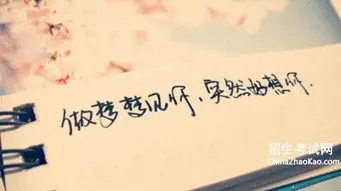 做梦梦见你，突然好想你.
招生考试网
ChinaZhaoKao.com